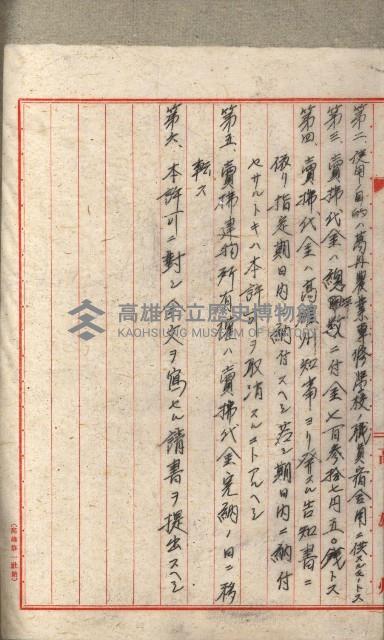 第二、使用ノ目的ハ萬丹農業専修学校ノ職員宿舎用ニ供スルモノトス
第三、賣拂代金ハ總坪数ニ付金七百参拾七円五〇銭トス
第四、賣拂代金ハ高雄州知事ヨリ発スル告知書ニ
依リ指定期日内ニ納付スヘシ若シ期日内ニ納付
セサルトキハ本許可ヲ取消スコトアルヘシ
第五、賣拂建物所有権ハ賣拂代金完納ノ日ニ移
転ス
第六、本許可ニ對シ全文ヲ寫セル請書ヲ提出スヘシ
高雄州
高雄市立歷史博物館
KAOHSIUNG MUSEUM OF HISTORY